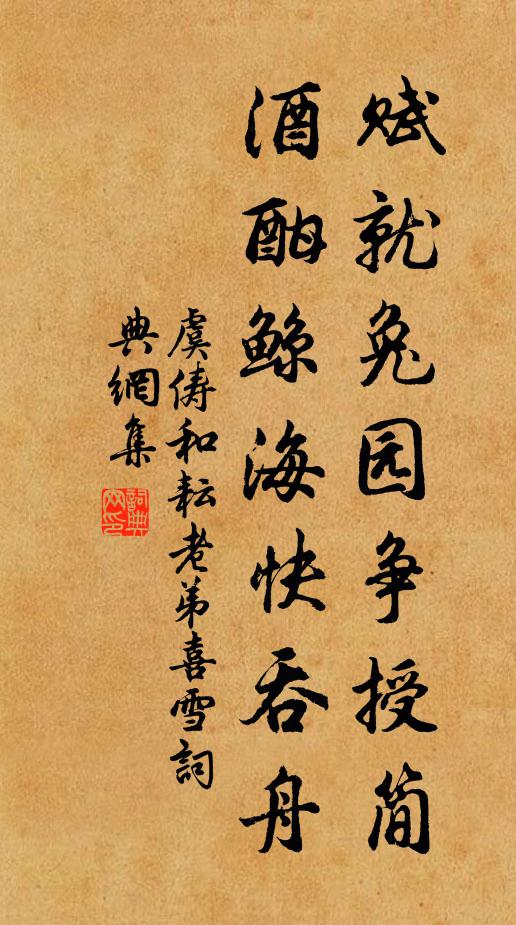 赋就兔园争授简
酒酣鲸海快吞舟
虞俦和耘老弟喜雪詞
典網集
詞典網印